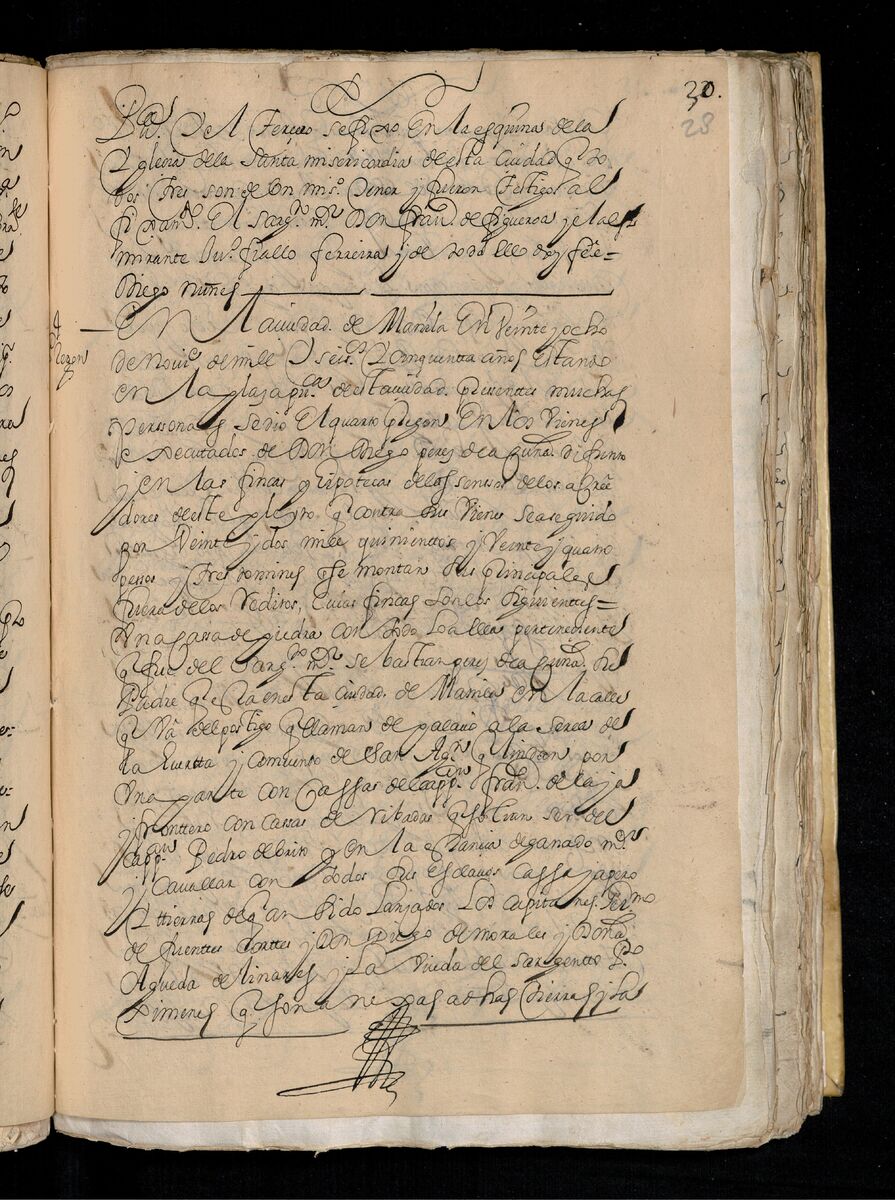 30.
28
Bra. Y el terzero se fixo En la esquina de la
Yglesia de la Santa misericordia de esta Ciudad q̃ to
dos tres son de Un mismo. tenor y fueron testigos al
fixarlo. El sargto. mr. Don Franco. de figueroa y el al
mirante Luis. fiallo ferreira y de todo ello doy fee=
Diego nuñes
4
Pregon
En la ciudad. de Manila En Veinte y ocho
de Noviẽ. de mill Y seisos. Y Cinquentta años estando
en la plaza puca. de esta ciudad. presenttes muchas
personas se dio El quarto pregon En los Vienes
executados de Don Diego peres de a Cuña. difunto
y en las fincas y hipotecas de los sensos de los acree
dores de este pleyto. q̃ contra sus Vienes se a seguido
por Veinte y dos mill quinienttos y Veinte y quatro
pessos y tres tomines q̃ se montan sus principales
fuera de los Reditos, Cuias fincas son los siguienttes=
Una cassa de piedra con todo lo a ella pertenesiente
q̃ fue del Sargto. mr. sebastian peres de a Cuña. su
Padre q̃ esta en esta Ciudad. de Manila en la calle
q̃ Va del postigo q̃ llaman de palacio a la serca de
la huertta y combento de San Agn. q̃ lindan por
Una parte con Cassas del capp.an Franco. de la ja
y frontero con cassas de Ribadas q̃ solian ser del
capp.an Pedro de brito y en la estancia de ganado mr.
y Cavallar con todos sus esclavos cassa y apero
Y ttierras de q̃ an sido lanzados los capitanes. Germo
de fuenttes Corttes y Don Diego de morales y Doña
Agueda de linares y La Viuda del sargentto Po
Ximenes q̃ son anexas a dhas tierras y la